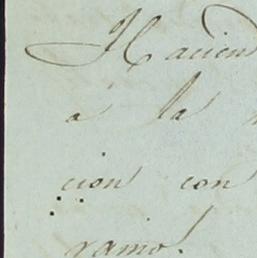 Haciend
á la
cion con
ramo.